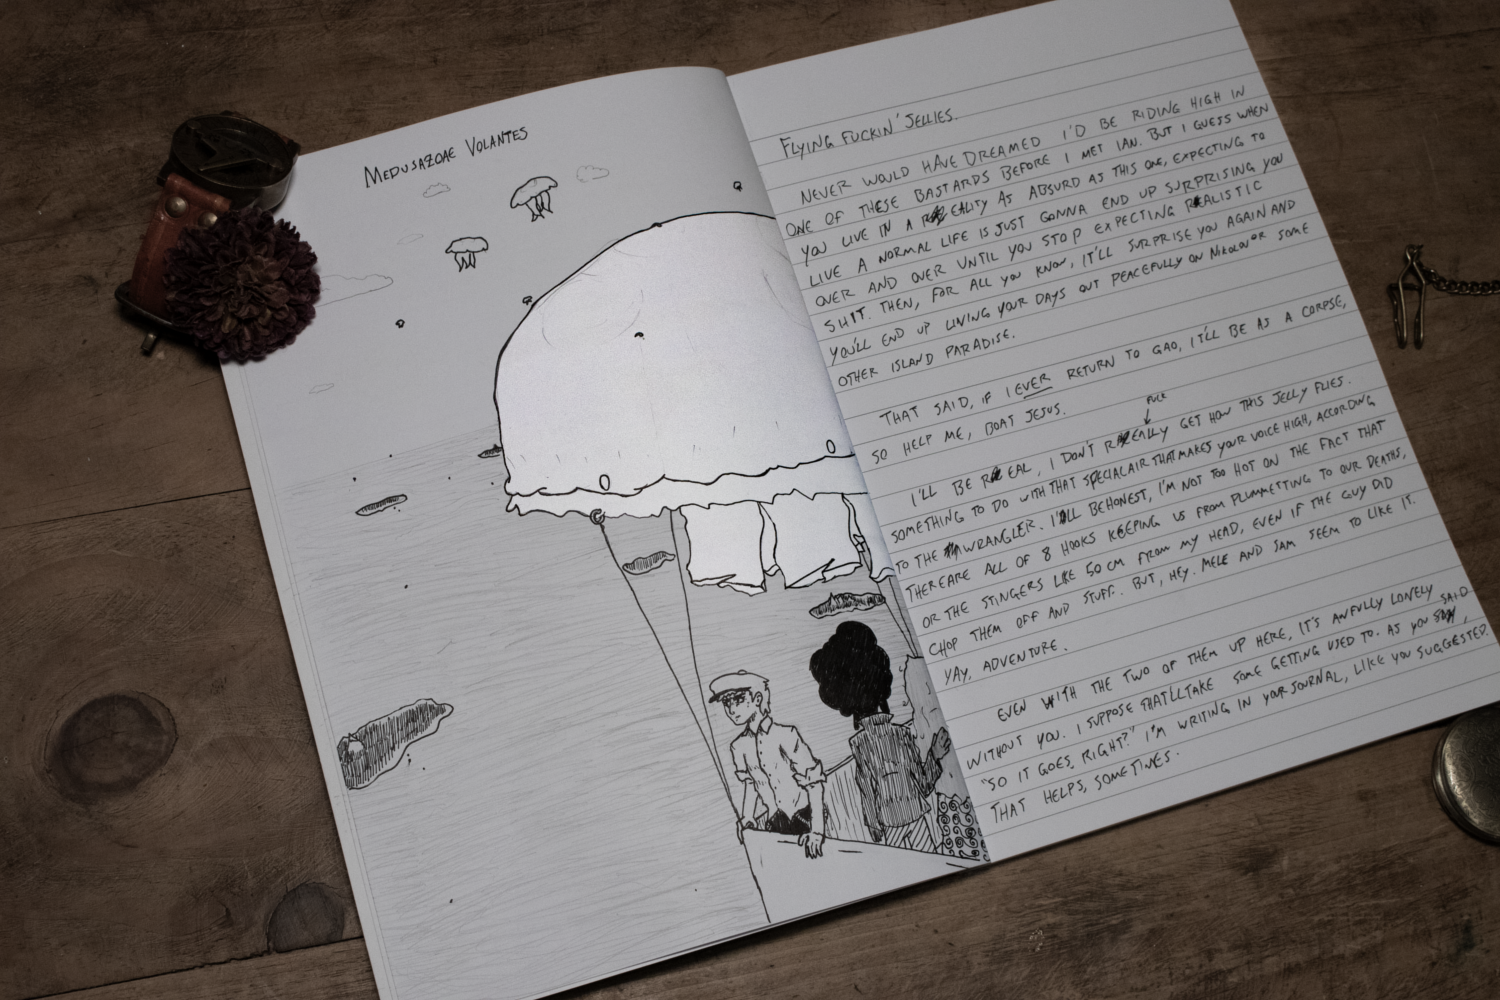 MEDUSAZOAE VOLANTES
FLYING FUCKIN' JELLIES.
NEVER WOULD HAVE DREAMED I'D BE RIDING HIGH IN
ONE OF THESE BASTARDS BEFORE I MET IAN. BUT I GUESS WHEN
YOU LIVE IN A REALITY AS ABSURD AS THIS ONE, EXPECTING TO
LIVE A NORMAL LIFE IS JUST GONNA END UP SURPRISING YOU
OVER AND OVER UNTIL YOU STOP EXPECTING REALISTIC
SHIT. THEN, FOR ALL YOU KNOW, IT'LL SURPRISE YOU AGAIN AND
YOU'LL END UP LIVING YOUR DAYS OUT PEACEFULLY ON OR SOME
OTHER ISLAND PARADISE.
THAT SAID, IF I EVER RETURN TO GAO, IT'LL BE AS A CORPSE,
SO HELP ME, BOAT JESUS.
FUCK
I'LL BE REAL, I DON'T REALLY GET HOW THIS JELLY FLIES.
SOMETHING TO DO WITH THAT SPECIAL AIR THAT MAKES YOUR VOICE HIGH, ACCORDING
TO THE WRANGLER. I'LL BE HONEST, I'M NOT TOO HOT ON THE FACT THAT
THERE ARE ALL OF 8 HOOKS KEEPING US FROM PLUMMETTING TO OUR DEATHS,
OR THE STINGERS LIKE 50 CM FROM MY HEAD, EVEN IF THE GUY DID
CHOP THEM OFF AND STUFF. BUT, HEY. MELE AND SAM SEEM TO LIKE IT.
YAY, ADVENTURE.
EVEN WITH THE TWO OF THEM UP HERE, IT'S AWFULLY LONELY
WITHOUT YOU. I SUPPOSE THAT'LL TAKE SOME GETTING USED TO. AS YOU SAID,
"SO IT GOES, RIGHT?" I'M WRITING IN YOUR JOURNAL, LIKE YOU SUGGESTED.
THAT HELPS, SOMETIMES.